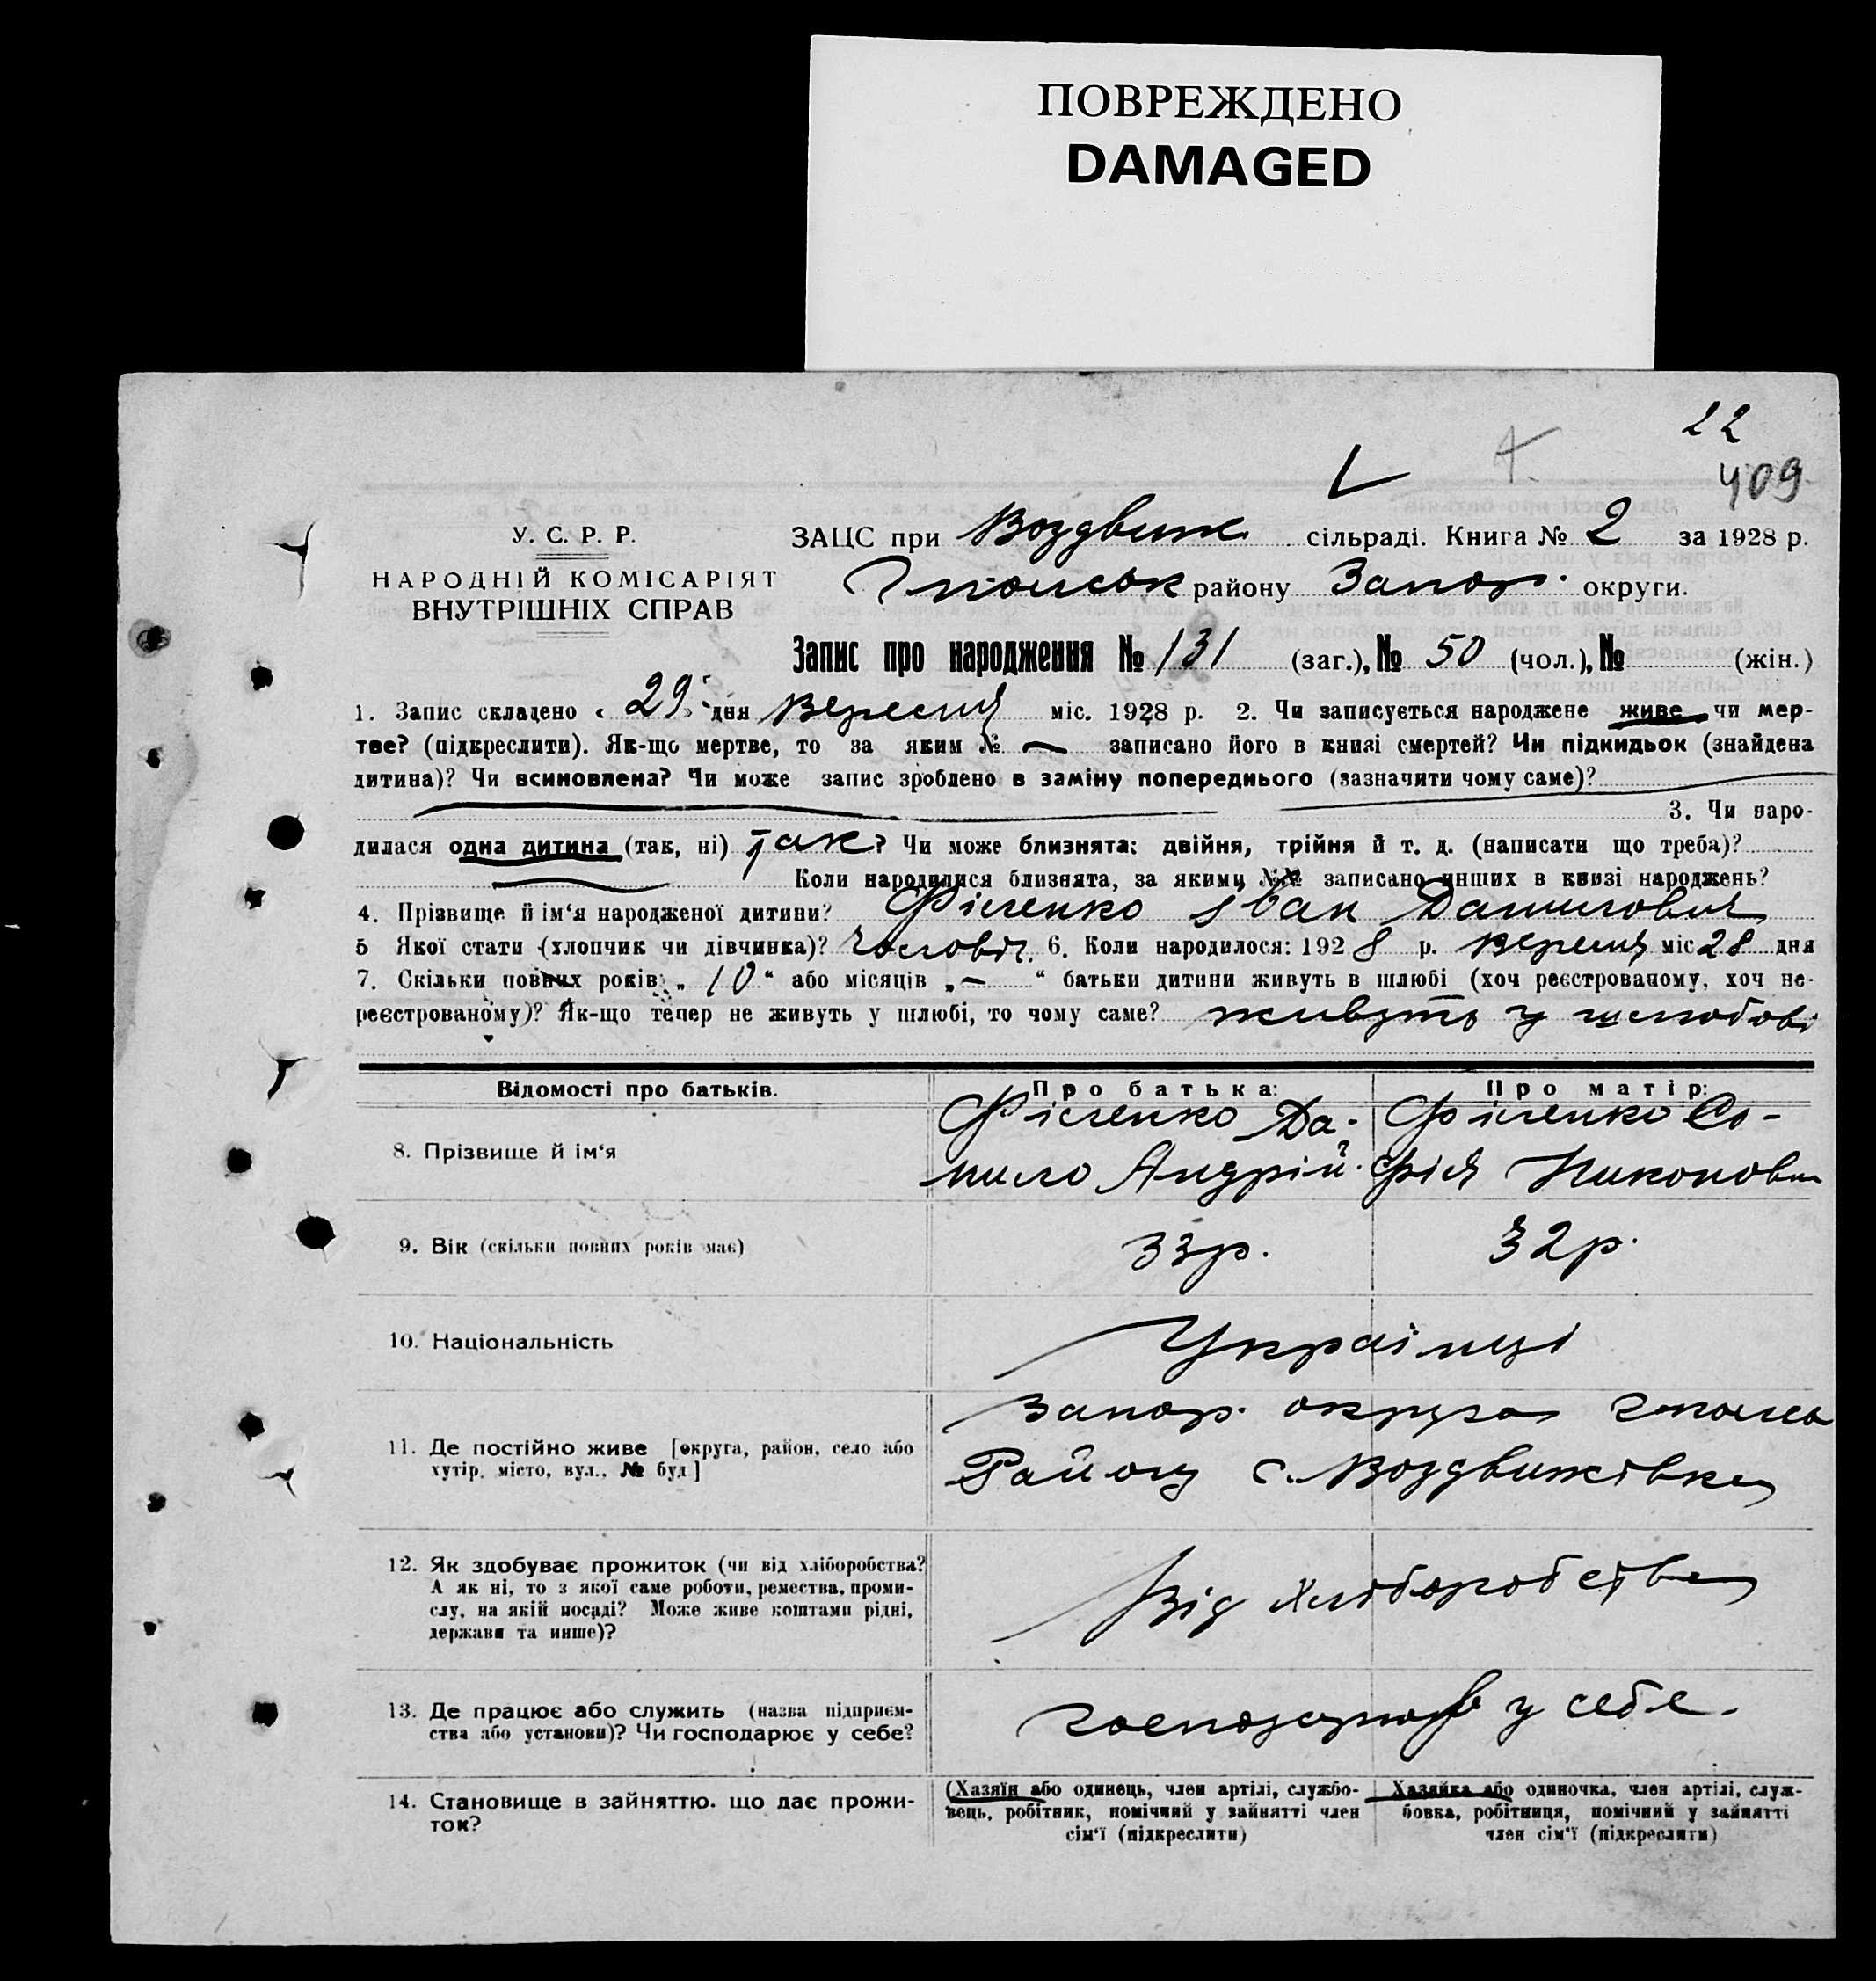 ПОВРЕЖДЕНО
DAMAGED
22
409
У. С. Р. Р.
НАРОДНІЙ КОМІСАРІЯТ
ВНУТРІШНІХ СПРАВ
ЗАЦС при Воздвиж. сільраді. Книга № 2 за 1928 р.
району Запор. округи.
Запис про народження № 131 (заг.), № 50 (чол.), № (жін.)
1. Запис складено « 29 » дня Вересня міс. 1928 р. 2. Чи записується народжене живе чи мер-
тве? (підкреслити). Як-що мертве, то за яким № — записано його в книзі смертей? Чи підкидьок (знайдена
дитина)? Чи всиновлена? Чи може запис зроблено в заміну попереднього (зазначити чому саме)?
3. Чи наро-
дилася одна дитина (так, ні) Так? Чи може близнята: двійня, трійня й т. д. (написати що треба)?
Коли народилися близнята, за якими №№ записано инших в книзі народжень?
4. Прізвище й ім‘я народженої дитини? Фісенко Іван Данилович
5 Якої стати (хлопчик чи дівчинка)? Чоловіч. 6. Коли народилося: 1928 р. Вересня міс 28 дня
7. Скільки повних років „ 10 “ або місяців „ — “ батьки дитини живуть в шлюбі (хоч реєстрованому, хоч не-
реєстрованому)? Як-що тепер не живуть у шлюбі, то чому саме? живуть у шлюбові
Відомості про батьків. Про батька: Про матір:
8. Прізвище й ім‘я Фісенко Да- Фісенко Со-
нило Андрій. фія Никоновн
9. Вік (скільки повних років має) 33р. 32р.
10. Національність Українці
Запор. округа
11. Де постійно живе [округа, район, село або
хутір, місто, вул., № буд] Району с. Воздвижівка
12. Як здобуває прожиток (чи від хліборобства?
А як ні, то з якої саме роботи, ремества, проми-
слу, на якій посаді? Може живе коштами рідні,
держави та инше)? Від хліборобства
13. Де працює або служить (назва підприєм-
ства або установи)? Чи господарює у себе? у себе.
14. Становище в зайняттю. що дає прожи-
ток?
(Хазяїн або одинець, член артілі, службо-
вець, робітник, помічний у зайнятті член
сім‘ї (підкреслити)
Хазяйка або одиночка, член артілі, служ-
бовка, робітниця, помічний у зайнятті
член сім‘ї (підкреслити)